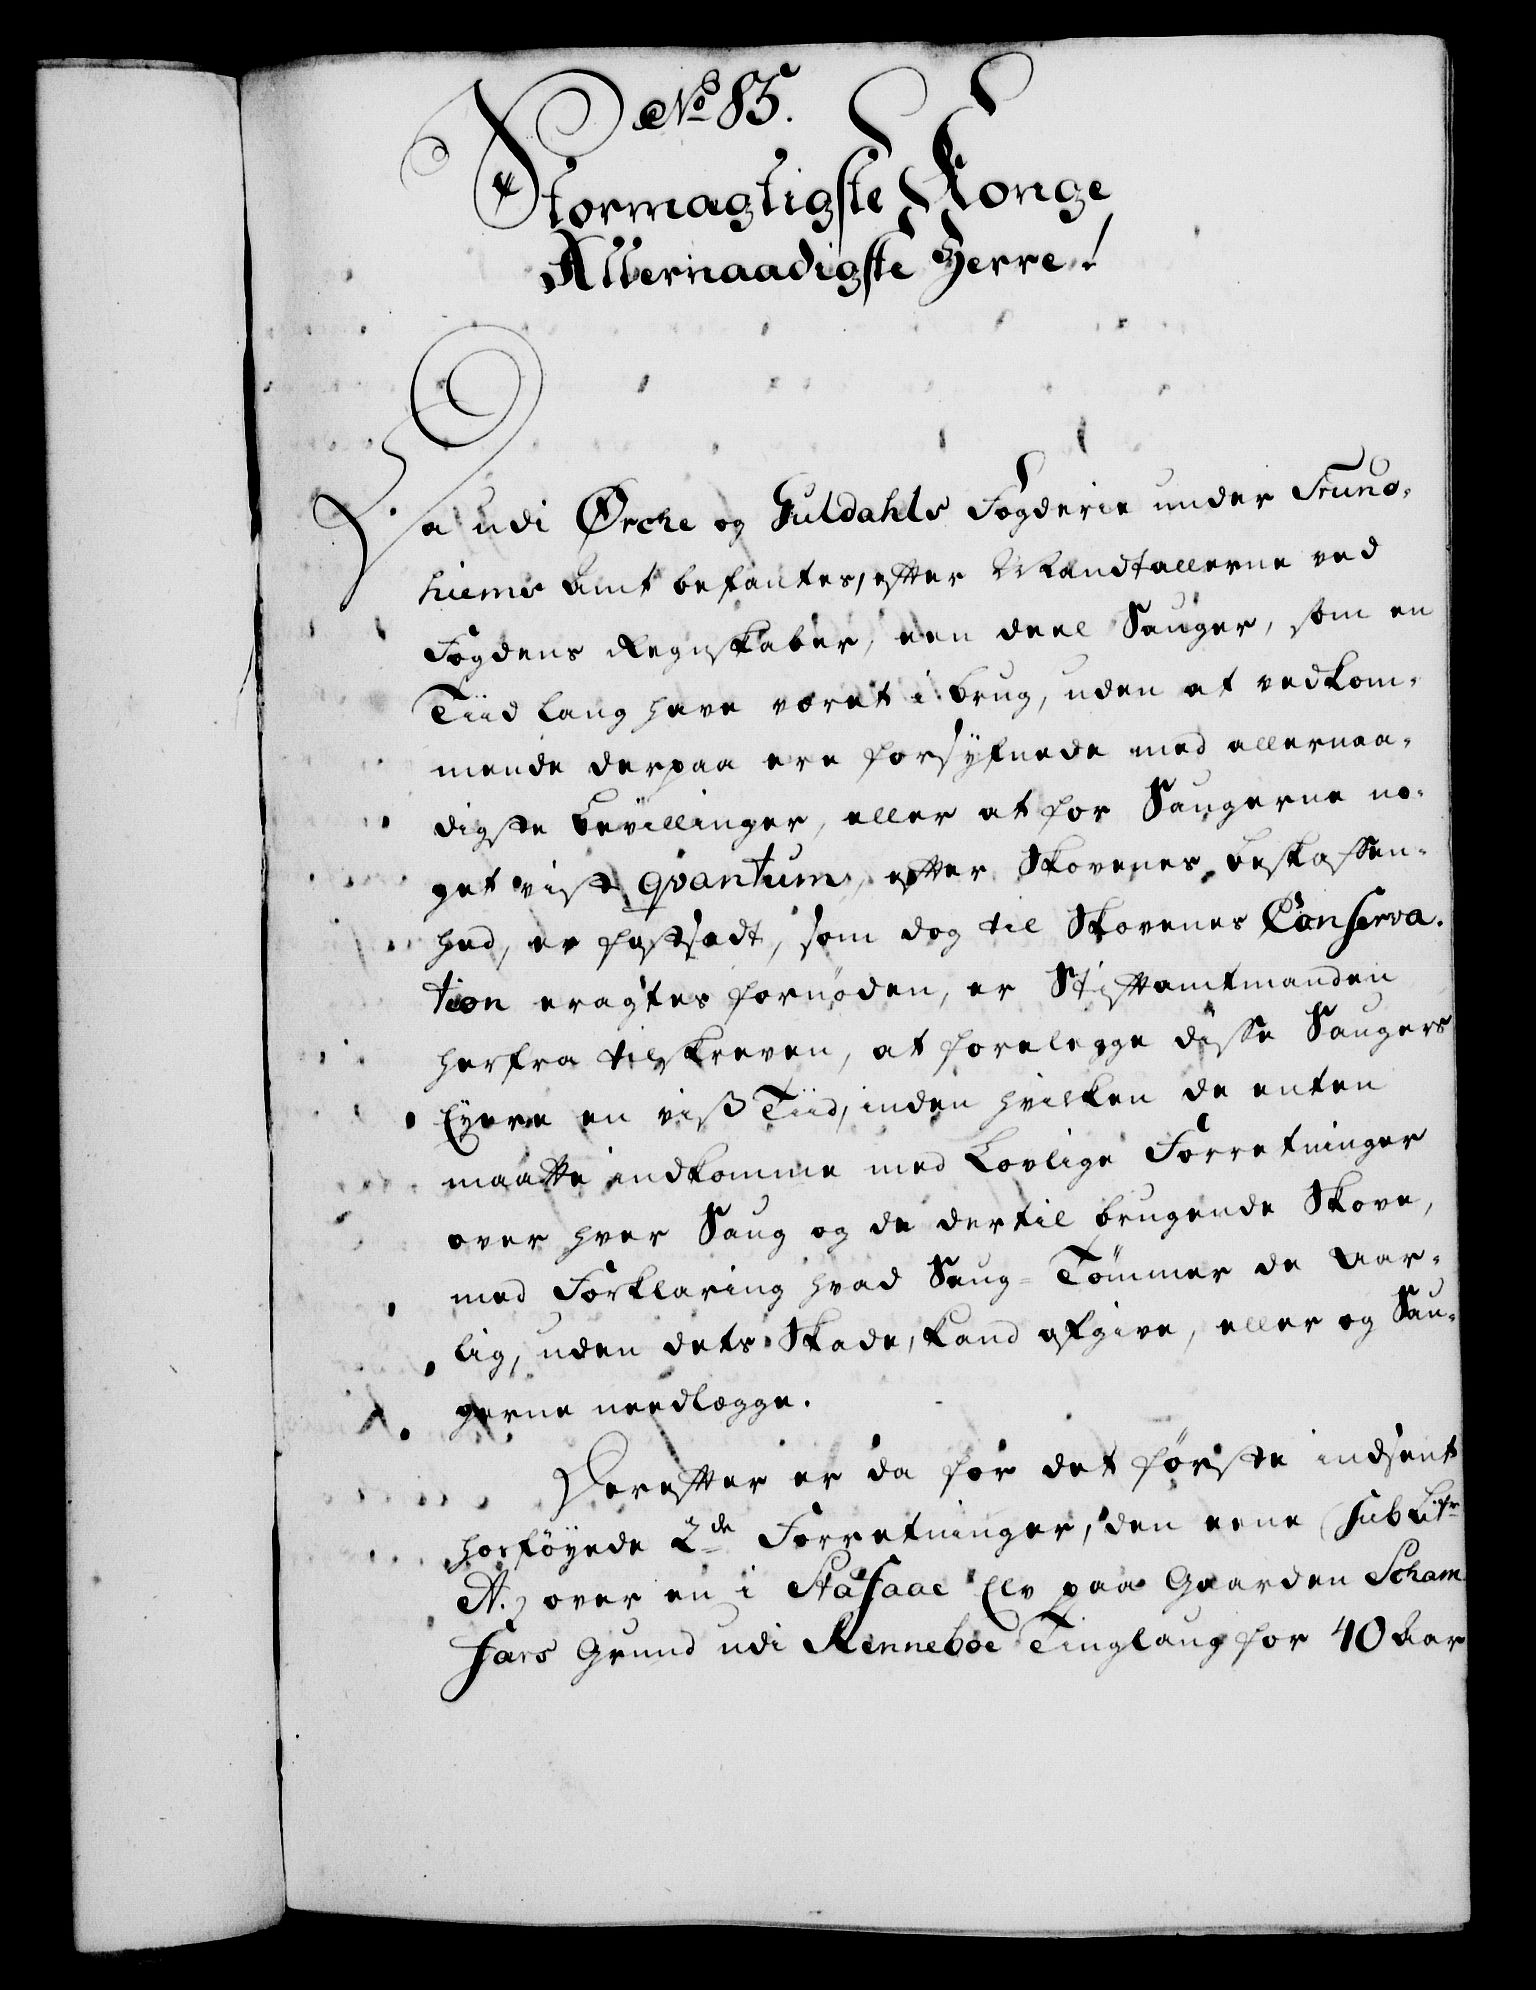 No 85.
Stormagtigste Konge
Allernaadigste Herre!
Da udi Ørche og Guldahls Fogderie under Trund-
hiems Amt befantes, efter Mandtallerne ved
Fogdens Regnskaber, een deel Sauger, som en
Tiid lang have været i brug, uden at vedkom-
mende derpaa ere forsÿnede med allernaa-
digste Bevillinger, eller at for Saugerne no-
get vist qvantum, efter Skovenes beskaffen-
hed, er fastsadt, som dog til Skovenes Conserva-
tion eragtes fornøden, er Stiftamtmanden
herfra tilskreven, at forelegge disse Saugers
Eyere en viss Tiid, inden hvilken de enten
maatte indkomme med Lovlige Forretninger
over hver Saug og de dertil brugende Skove,
med Forklaring hvad Saug-Tømmer de Aar-
lig, uden dets Skade, kand afgive, eller og Sau-
gerne needlægge.
Derefter er da for det første indsent
hosføyede 2de Forretninger, den eene (sub Litr
A.) over en i Stafaae Elv paa Gaarden Scham-
fars Grund udi Renneboe Tinglaug for 40 Aar